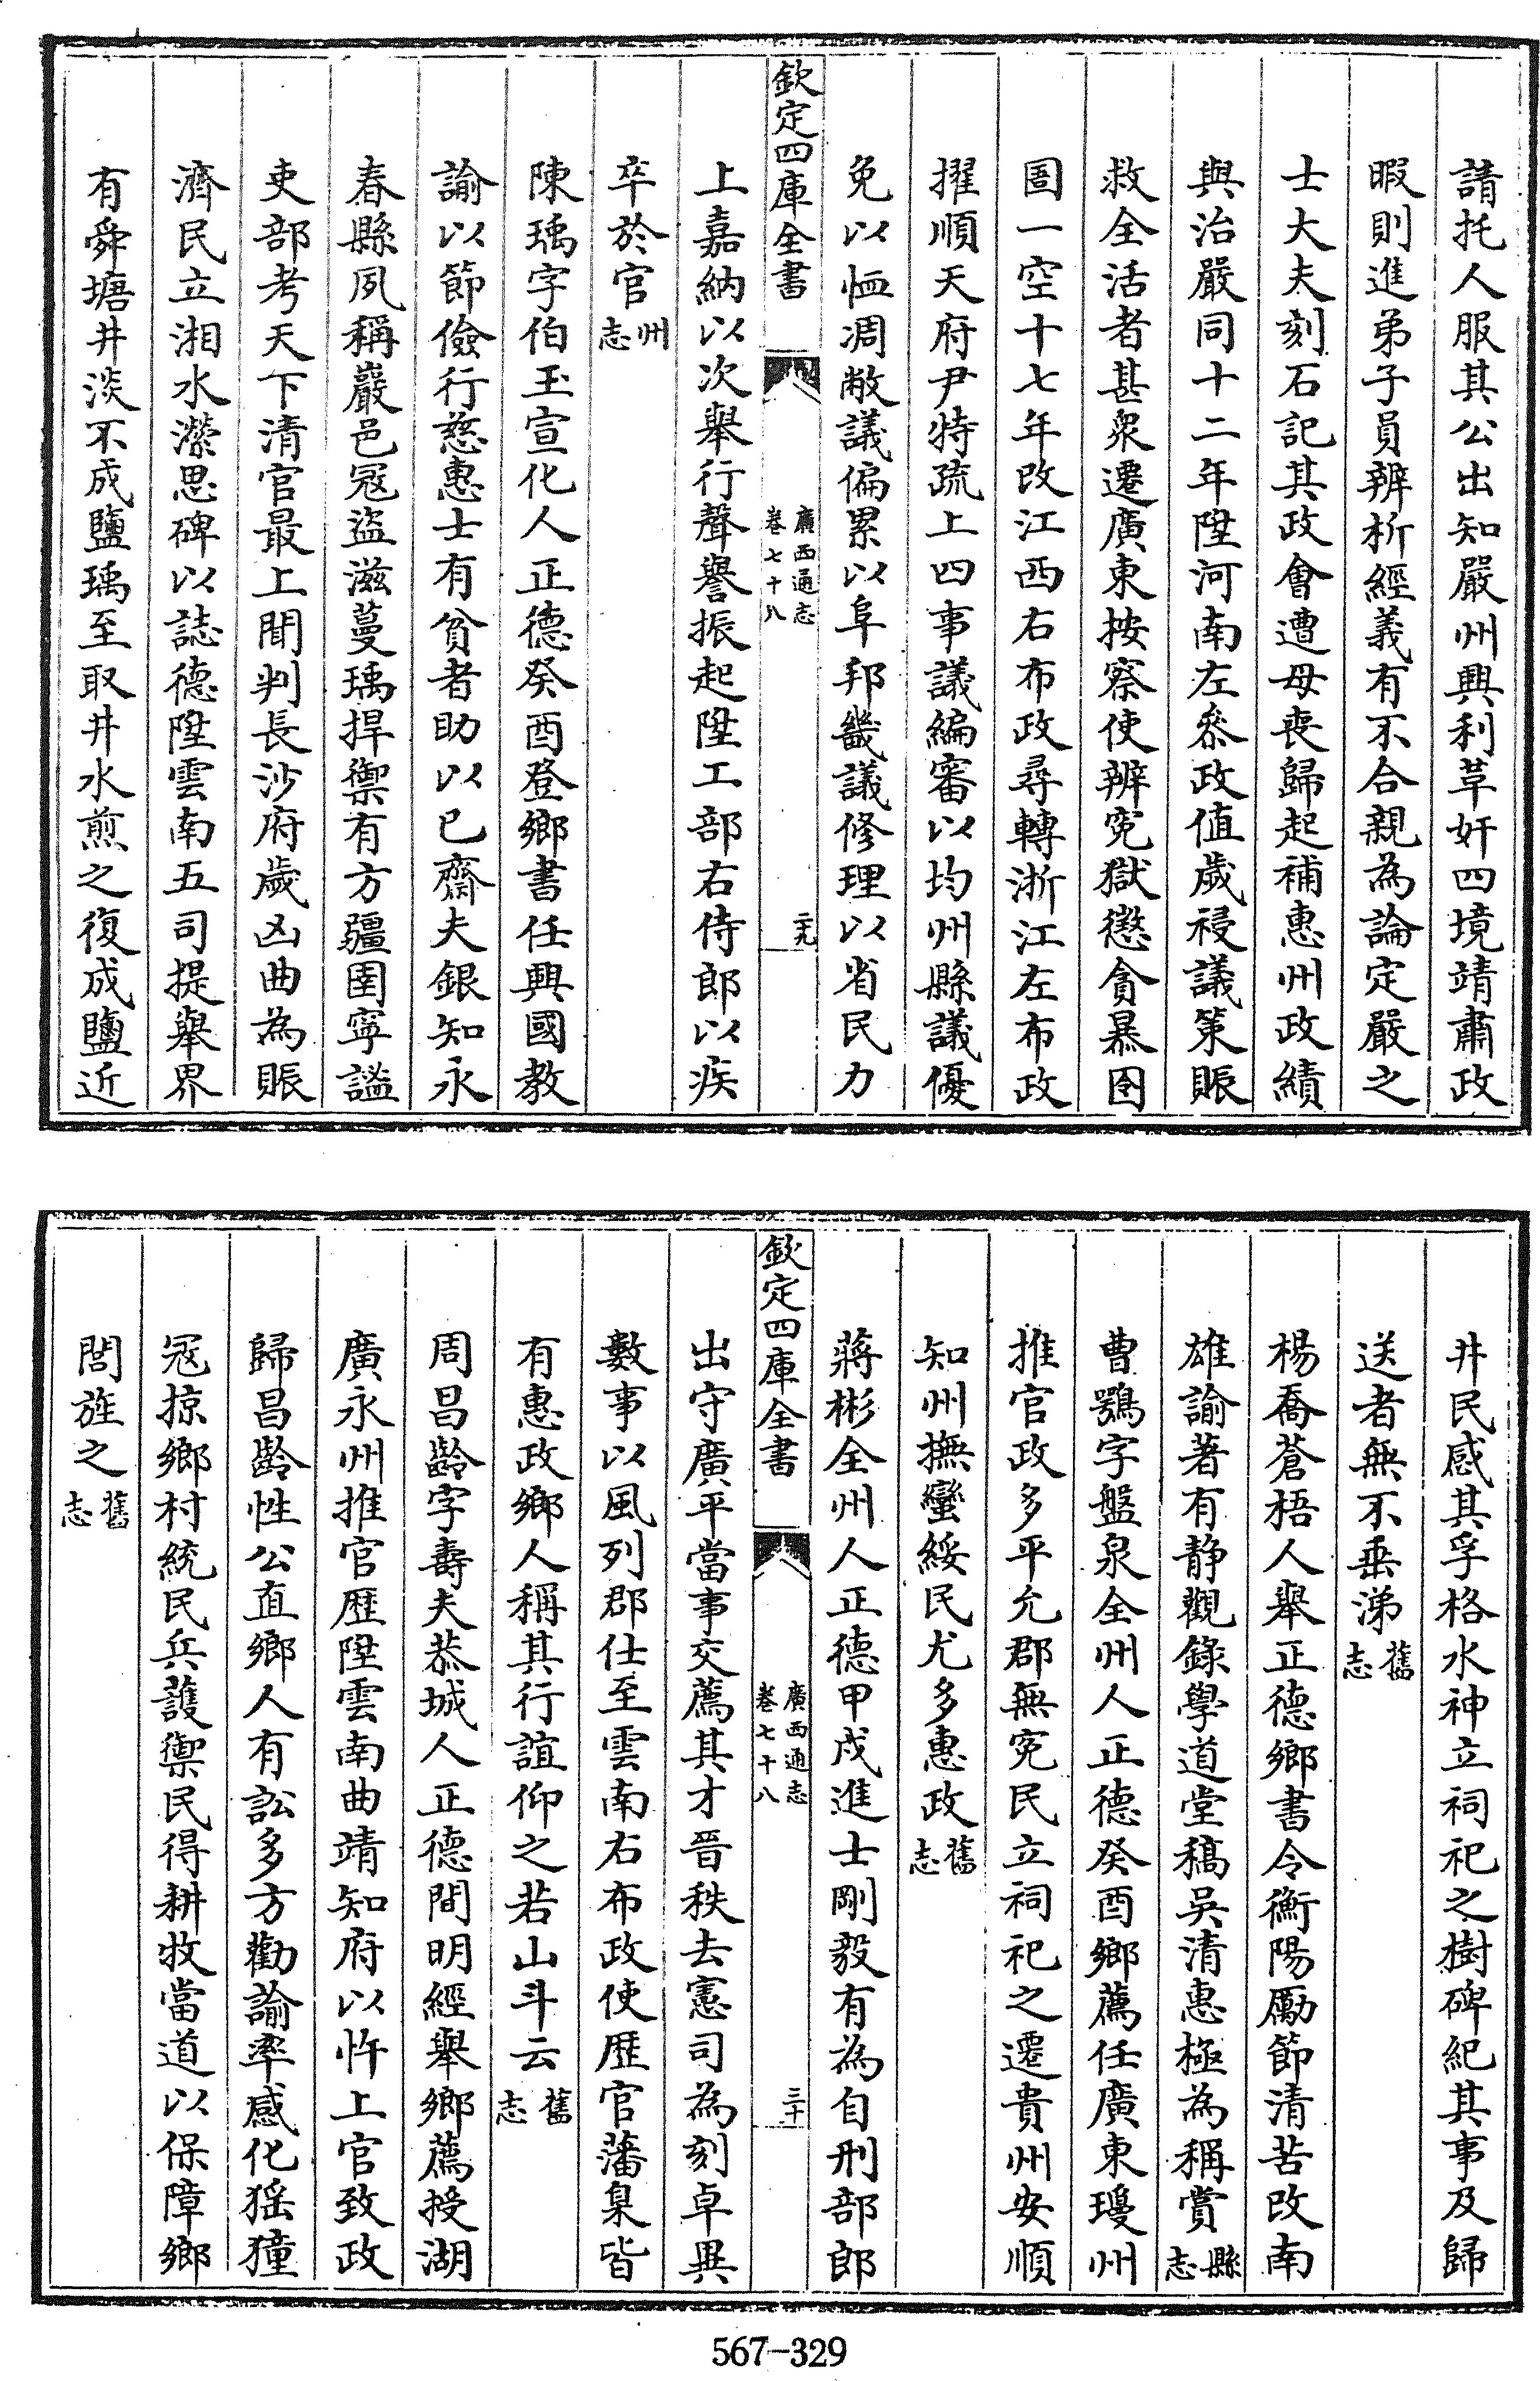 請托人服其公出知嚴州興利革奸四境靖肅政
暇則進弟子員辨析經義有不合親為論定嚴之
士大夫刻石記其政會遭母喪歸起補惠州政績
與治嚴同十二年陞河南左叅政值歲祲議策賑
救全活者甚衆遷廣東按察使辨寃獄懲貪暴囹
圄一空十七年改江西右布政尋轉浙江左布政
擢順天府尹特疏上四事議編審以均州縣議優
免以恤凋敝議偏累以阜邦畿議修理以省民力
欽定四庫全書
廣西通志
卷七十八
二十九
上嘉納以次舉行聲譽振起陞工部右侍郎以疾
卒於官州志
陳瑀字伯玉宣化人正德癸酉登鄉書任興國教
諭以節儉行慈惠士有貧者助以已齋夫銀知永
春縣夙稱巖邑冦盜滋蔓瑀捍禦有方疆圉寧謐
吏部考天下清官最上聞判長沙府歲凶曲為賑
濟民立湘水瀠思碑以誌德陞雲南五司提舉界
有舜塘井淡不成鹽瑀至取井水煎之復成鹽近
井民感其孚格水神立祠祀之樹碑紀其事及歸
送者無不垂涕舊志
楊喬蒼梧人舉正德鄉書令衡陽勵節清苦改南
雄諭著有静觀錄學道堂稿吳清惠極為稱賞縣志
曹鶚字盤泉全州人正德癸酉鄉薦任廣東瓊州
推官政多平允郡無寃民立祠祀之遷貴州安順
知州撫蠻綏民尤多惠政舊志
蔣彬全州人正德甲戌進士剛毅有為自刑部郎
欽定四庫全書
廣西通志
卷七十八
三十
出守廣平當事交薦其才晉秩去憲司為刻卓異
數事以風列郡仕至雲南右布政使歷官藩臬皆
有惠政鄉人稱其行誼仰之若山斗云舊志
周昌齡字壽夫恭城人正德間明經舉鄉薦授湖
廣永州推官歷陞雲南曲靖知府以忤上官致政
歸昌齡性公直鄉人有訟多方勸諭率感化猺獞
冦掠鄉村統民兵護禦民得耕牧當道以保障鄉
閭旌之舊志
567-329